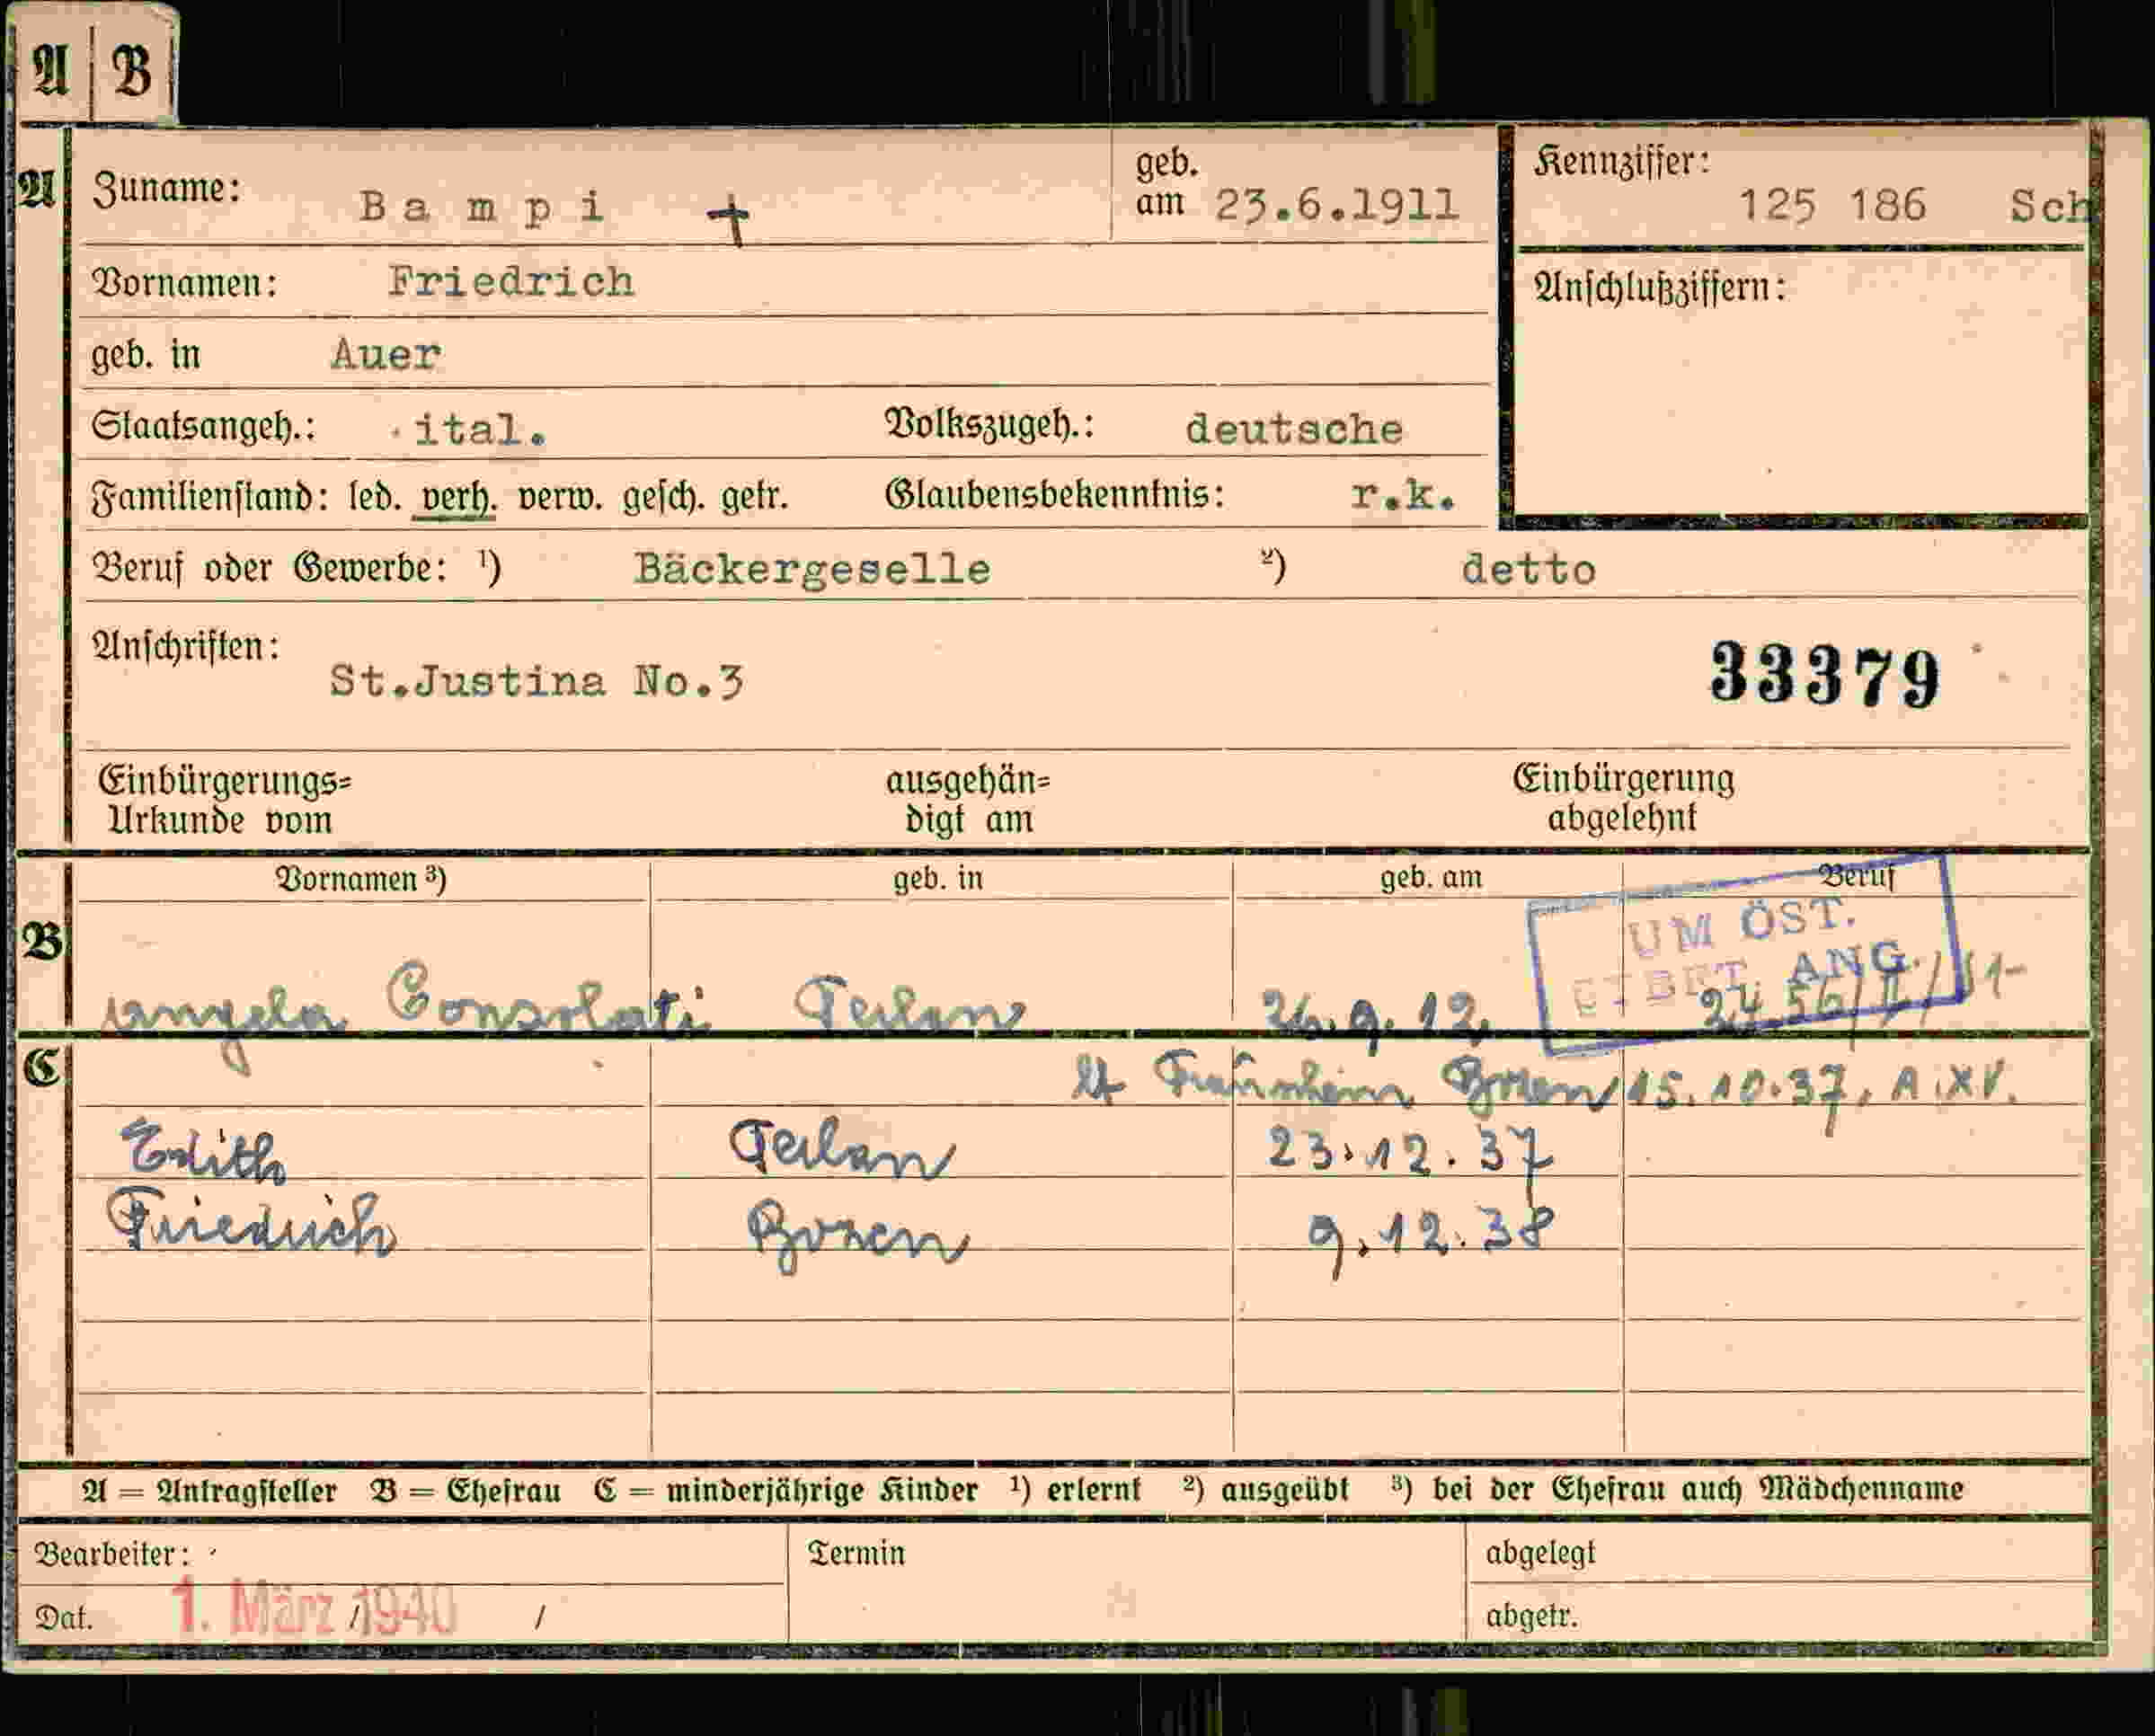 A B
A Zuname: Bampi + geb. am 23.6.1911 Kennziffer: 125 186 Sch
Vornamen: Friedrich Anschlußziffern:
geb. in Auer
Staatsangeh.: ital. Volkszugeh.: deutsche
Familienstand: led. verh. verw. gesch. getr. Glaubensbekenntnis: r.k.
Beruf oder Gewerbe: ¹) Bäckergeselle ²) detto
Anschriften: St.Justina No.3 33379
Einbürgerungs= ausgehän= Einbürgerung
Urkunde vom digt am abgelehnt
Vornamen ³) geb. in geb. am Beruf
UM ÖST.
ANG.
B Angela Consolati Terlan 26.9.12.
C Bozen 15.10.37, A.XV.
Edith Terlan 23.12.37
Friedrich Bozen 9.12.38
A = Antragsteller B = Ehefrau C = minderjährige Kinder ¹) erlernt ²) ausgeübt ³) bei der Ehefrau auch Mädchenname
Bearbeiter: Termin abgelegt
Dat. 1. März 1940 / / abgetr.